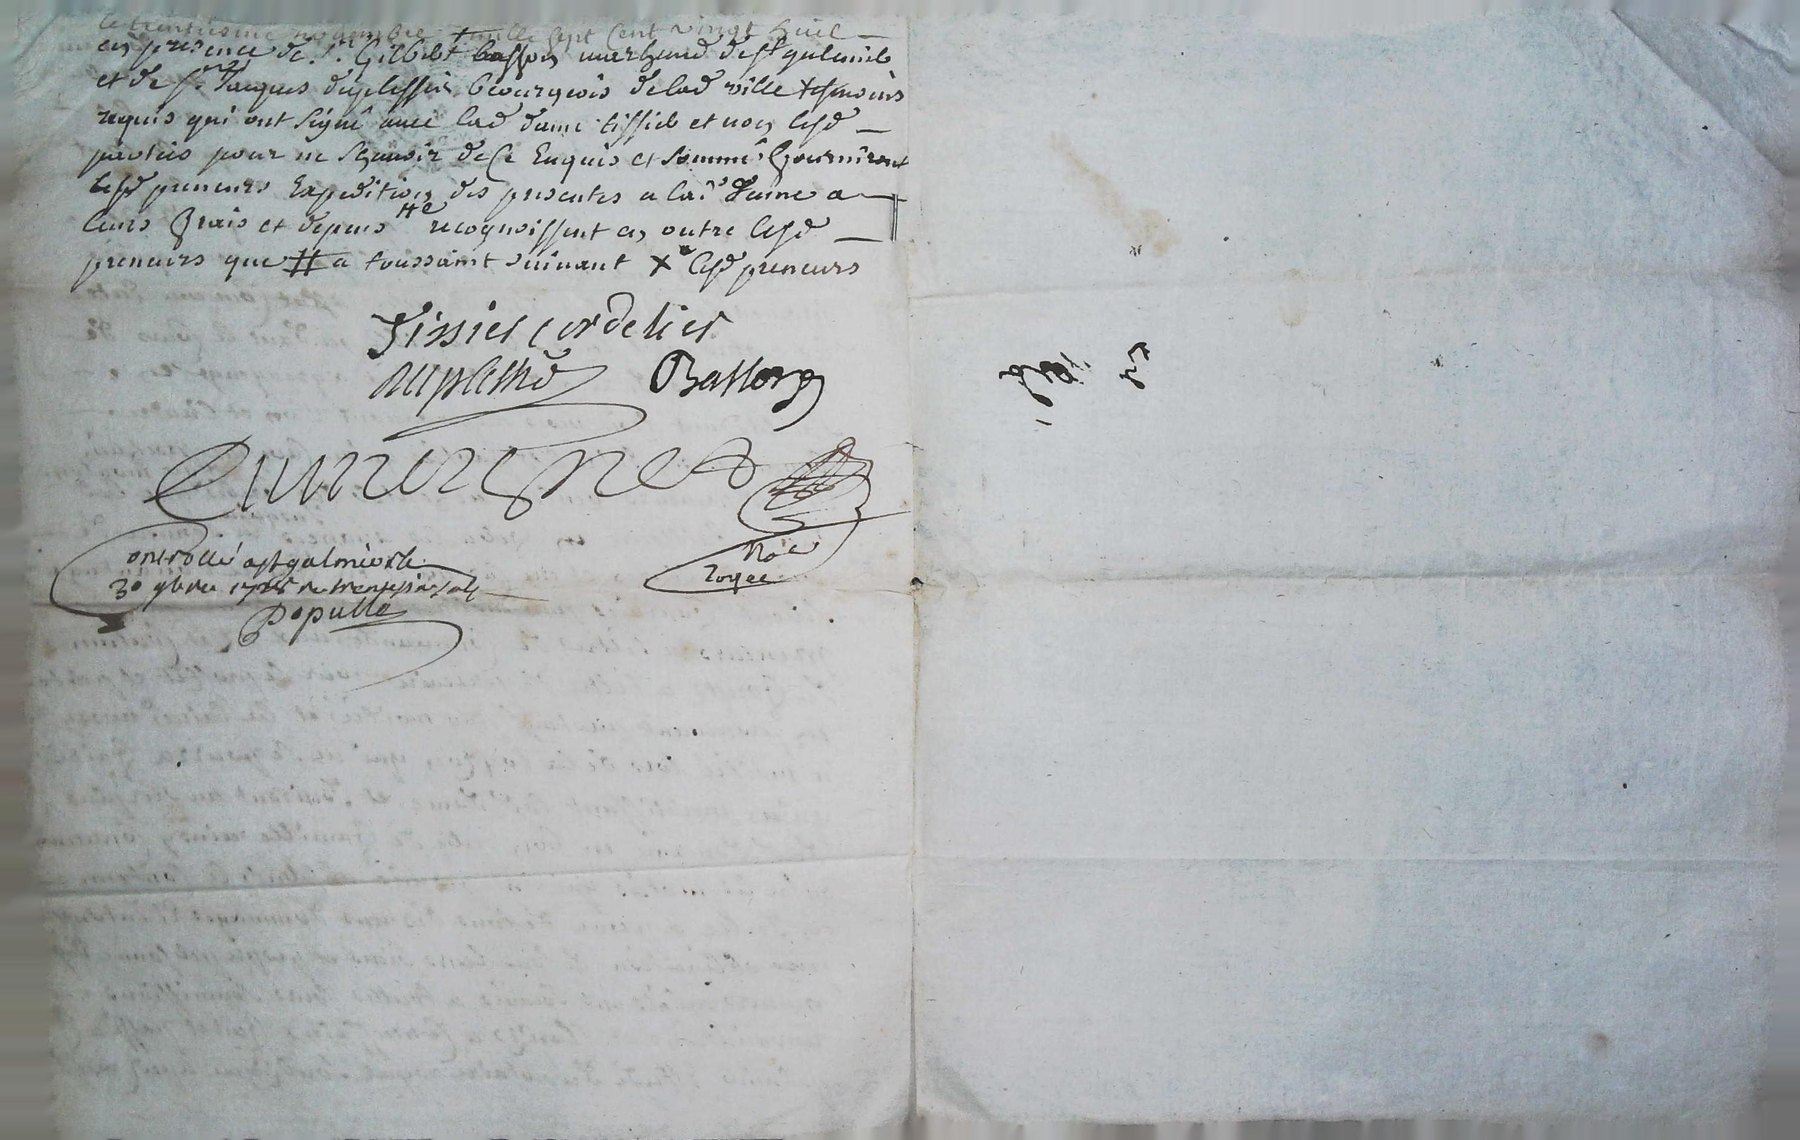 le trentieme novembre mille sept cent vingt huit
en presence de sr. Gilbert basson marchand de st galmier
et de sr Jacques duplessis bourgeois de lad ville tesmoins
requis qui ont signé avec lad dame tissier et non lesd
parties pour ne scavoir de ce enquis et sommés fourniront
lesd preneurs expedition des presentes a lad dame a
leurs frais et depens recognoissent en outre lesd
preneurs que # a toussaint suivant X lesd preneurs
tissier cordelier
duplessis Basson
Nore
Royal
controllé a st galmier le
30 9bre 1728 r trente six sols
Populle